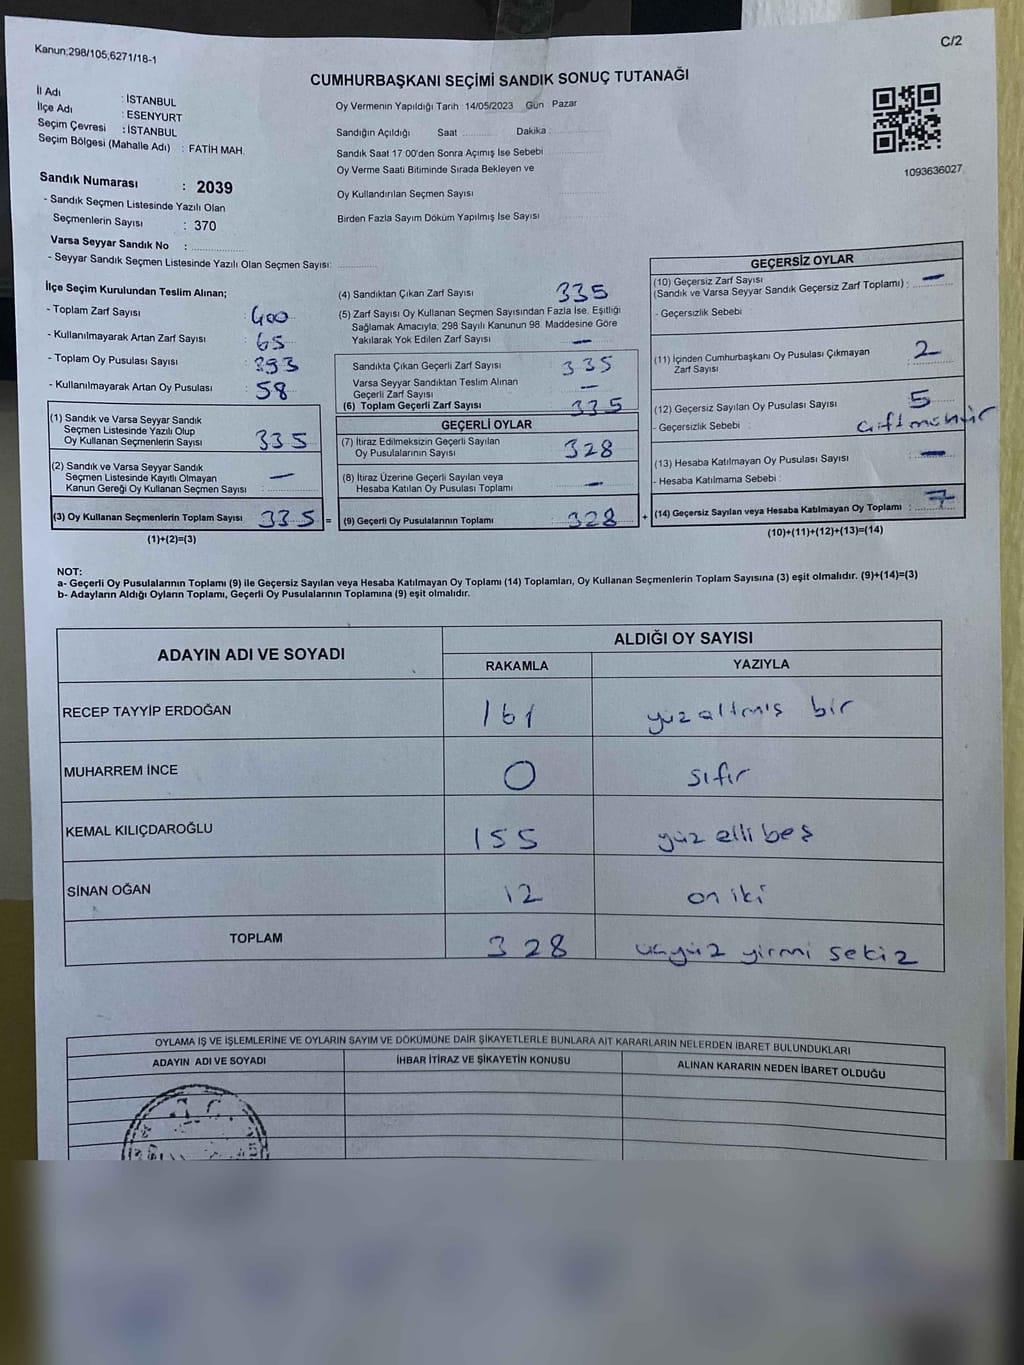 Kanun;298/105;6271/18-1
C/2
CUMHURBAŞKANI SEÇİMİ SANDIK SONUÇ TUTANAĞI
İl Adı : İSTANBUL
İlçe Adı : ESENYURT
Seçim Çevresi : İSTANBUL
Seçim Bölgesi (Mahalle Adı) : FATİH MAH.
Sandık Numarası : 2039
- Sandık Seçmen Listesinde Yazılı Olan
Seçmenlerin Sayısı : 370
Varsa Seyyar Sandık No :
- Seyyar Sandık Seçmen Listesinde Yazılı Olan Seçmen Sayısı:
Oy Vermenin Yapıldığı Tarih : 14/05/2023 Gün : Pazar
Sandığın Açıldığı Saat Dakika :
Sandık Saat 17 00'den Sonra Açımış İse Sebebi
Oy Verme Saati Bitiminde Sırada Bekleyen ve
Oy Kullandırılan Seçmen Sayısı
Birden Fazla Sayım Döküm Yapılmış İse Sayısı
1093636027
İlçe Seçim Kurulundan Teslim Alınan;
- Toplam Zarf Sayısı : 400
- Kullanılmayarak Artan Zarf Sayısı : 65
- Toplam Oy Pusulası Sayısı : 393
- Kullanılmayarak Artan Oy Pusulası : 58
(1) Sandık ve Varsa Seyyar Sandık
Seçmen Listesinde Yazılı Olup
Oy Kullanan Seçmenlerin Sayısı : 335
(2) Sandık ve Varsa Seyyar Sandık
Seçmen Listesinde Kayıtlı Olmayan
Kanun Gereği Oy Kullanan Seçmen Sayısı : —
(3) Oy Kullanan Seçmenlerin Toplam Sayısı : 335 =
(1)+(2)=(3)
(4) Sandıktan Çıkan Zarf Sayısı 335
(5) Zarf Sayısı Oy Kullanan Seçmen Sayısından Fazla İse, Eşitliği
Sağlamak Amacıyla, 298 Sayılı Kanunun 98. Maddesine Göre
Yakılarak Yok Edilen Zarf Sayısı —
Sandıkta Çıkan Geçerli Zarf Sayısı 335
Varsa Seyyar Sandıktan Teslim Alınan
Geçerli Zarf Sayısı —
(6) Toplam Geçerli Zarf Sayısı 335
GEÇERLİ OYLAR
(7) İtiraz Edilmeksizin Geçerli Sayılan
Oy Pusulalarının Sayısı 328
(8) İtiraz Üzerine Geçerli Sayılan veya
Hesaba Katılan Oy Pusulası Toplamı —
(9) Geçerli Oy Pusulalarının Toplamı 328 +
GEÇERSİZ OYLAR
(10) Geçersiz Zarf Sayısı
(Sandık ve Varsa Seyyar Sandık Geçersiz Zarf Toplamı) : —
- Geçersizlik Sebebi :
(11) İçinden Cumhurbaşkanı Oy Pusulası Çıkmayan
Zarf Sayısı 2
(12) Geçersiz Sayılan Oy Pusulası Sayısı 5
- Geçersizlik Sebebi : Çift mühür
(13) Hesaba Katılmayan Oy Pusulası Sayısı —
- Hesaba Katılmama Sebebi :
(14) Geçersiz Sayılan veya Hesaba Katılmayan Oy Toplamı : 7
(10)+(11)+(12)+(13)=(14)
NOT:
a- Geçerli Oy Pusulalarının Toplamı (9) ile Geçersiz Sayılan veya Hesaba Katılmayan Oy Toplamı (14) Toplamları, Oy Kullanan Seçmenlerin Toplam Sayısına (3) eşit olmalıdır. (9)+(14)=(3)
b- Adayların Aldığı Oyların Toplamı, Geçerli Oy Pusulalarının Toplamına (9) eşit olmalıdır.
ADAYIN ADI VE SOYADI
ALDIĞI OY SAYISI
RAKAMLA YAZIYLA
RECEP TAYYİP ERDOĞAN 161 yüz altmış bir
MUHARREM İNCE 0 sıfır
KEMAL KILIÇDAROĞLU 155 yüz elli beş
SİNAN OĞAN 12 on iki
TOPLAM 328 üçyüz yirmi sekiz
OYLAMA İŞ VE İŞLEMLERİNE VE OYLARIN SAYIM VE DÖKÜMÜNE DAİR ŞİKAYETLERLE BUNLARA AİT KARARLARIN NELERDEN İBARET BULUNDUKLARI
ADAYIN ADI VE SOYADI İHBAR İTİRAZ VE ŞİKAYETİN KONUSU ALINAN KARARIN NEDEN İBARET OLDUĞU